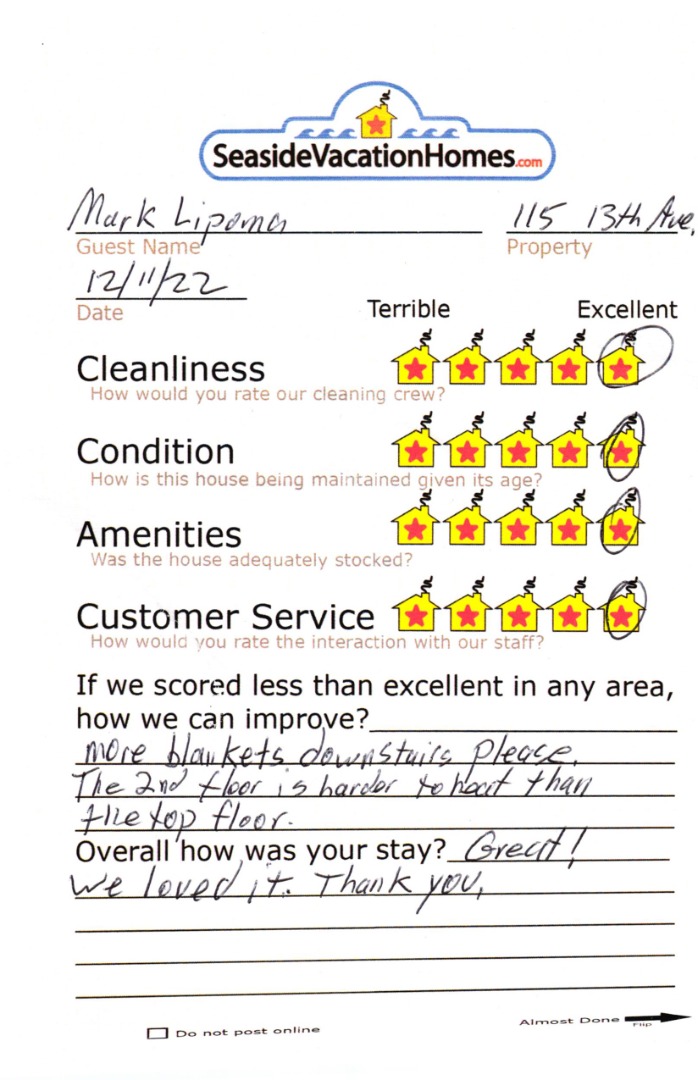 SeasideVacationHomes.com
Mark Lipoma 115 13th Ave.
Guest Name Property
12/11/22
Date Terrible Excellent
Cleanliness
How would you rate our cleaning crew?
Condition
How is this house being maintained given its age?
Amenities
Was the house adequately stocked?
Customer Service
How would you rate the interaction with our staff?
If we scored less than excellent in any area,
how we can improve?
more blankets downstairs please.
The 2nd floor is harder to heat than
the top floor.
Overall how was your stay? Great!
We loved it. Thank you,
Do not post online Almost Done
Flip